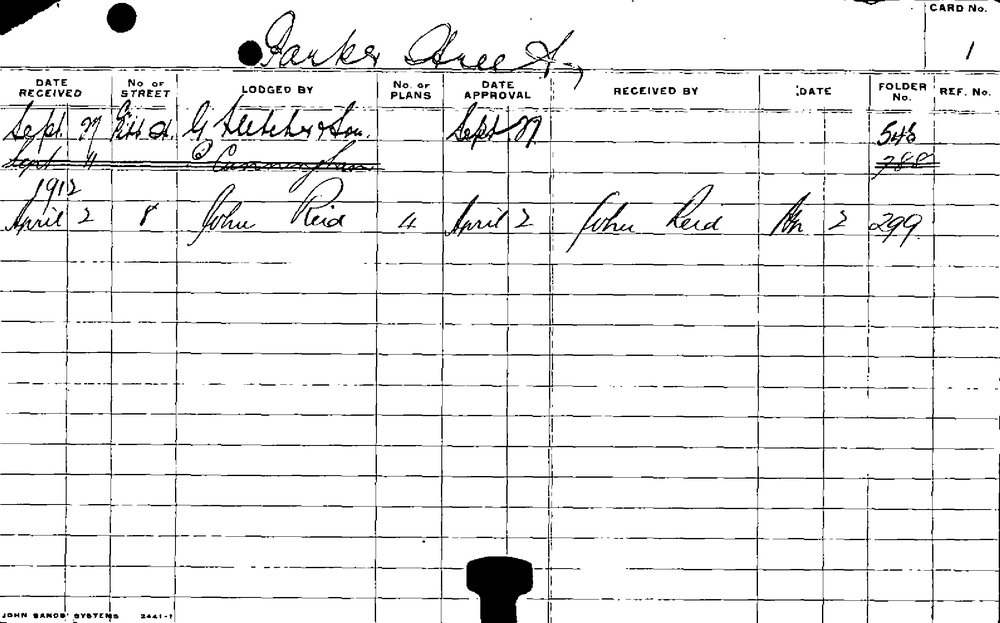 CARD No.
1
Parker Street,
DATE RECEIVED No. OF STREET LODGED BY No. OF PLANS DATE APPROVAL RECEIVED BY DATE FOLDER No. REF. No.
Sept. 27 Pitt St. G Fletcher & Son. Sept. 27 548
Sept 11 Cunningham 788
1912
April 2 8 John Reid 4 April 2 John Reid 2 299
JOHN SANDS' SYSTEMS 2441-1